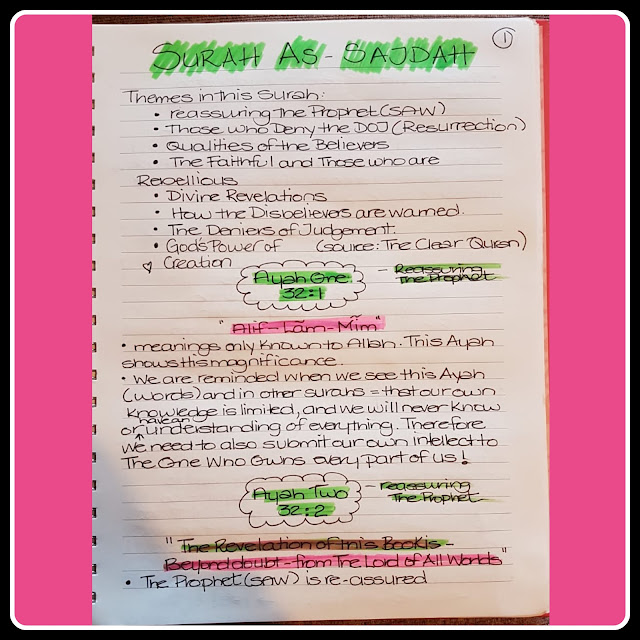 SURAH AS-SAJDAH
1
Themes in this Surah:
• reassuring the Prophet (SAW)
• Those who Deny the DOJ (Resurrection)
• Qualities of the Believers
• The Faithful and Those who are
Rebellious
• Divine Revelations
• How the Disbelievers are warned.
• The Deniers of Judgement.
• God's Power of (source: The Clear Quran)
Creation
Ayah One - Reassuring
32:1 The Prophet
"Alif-Lãm-Mĩm"
• meanings only known to Allah. This Ayah
shows this magnificance.
• We are reminded when we see this Ayah
(words) and in other surahs = that our own
knowledge is limited, and we will never know
or have an understanding of everything. Therefore
we need to also submit our own intellect to
The One Who Owns every part of us!
Ayah Two - reassuring
32:2 The Prophet
"The Revelation of this Book is -
Beyond doubt - from The Lord of All Worlds"
• The Prophet (SAW) is re-assured